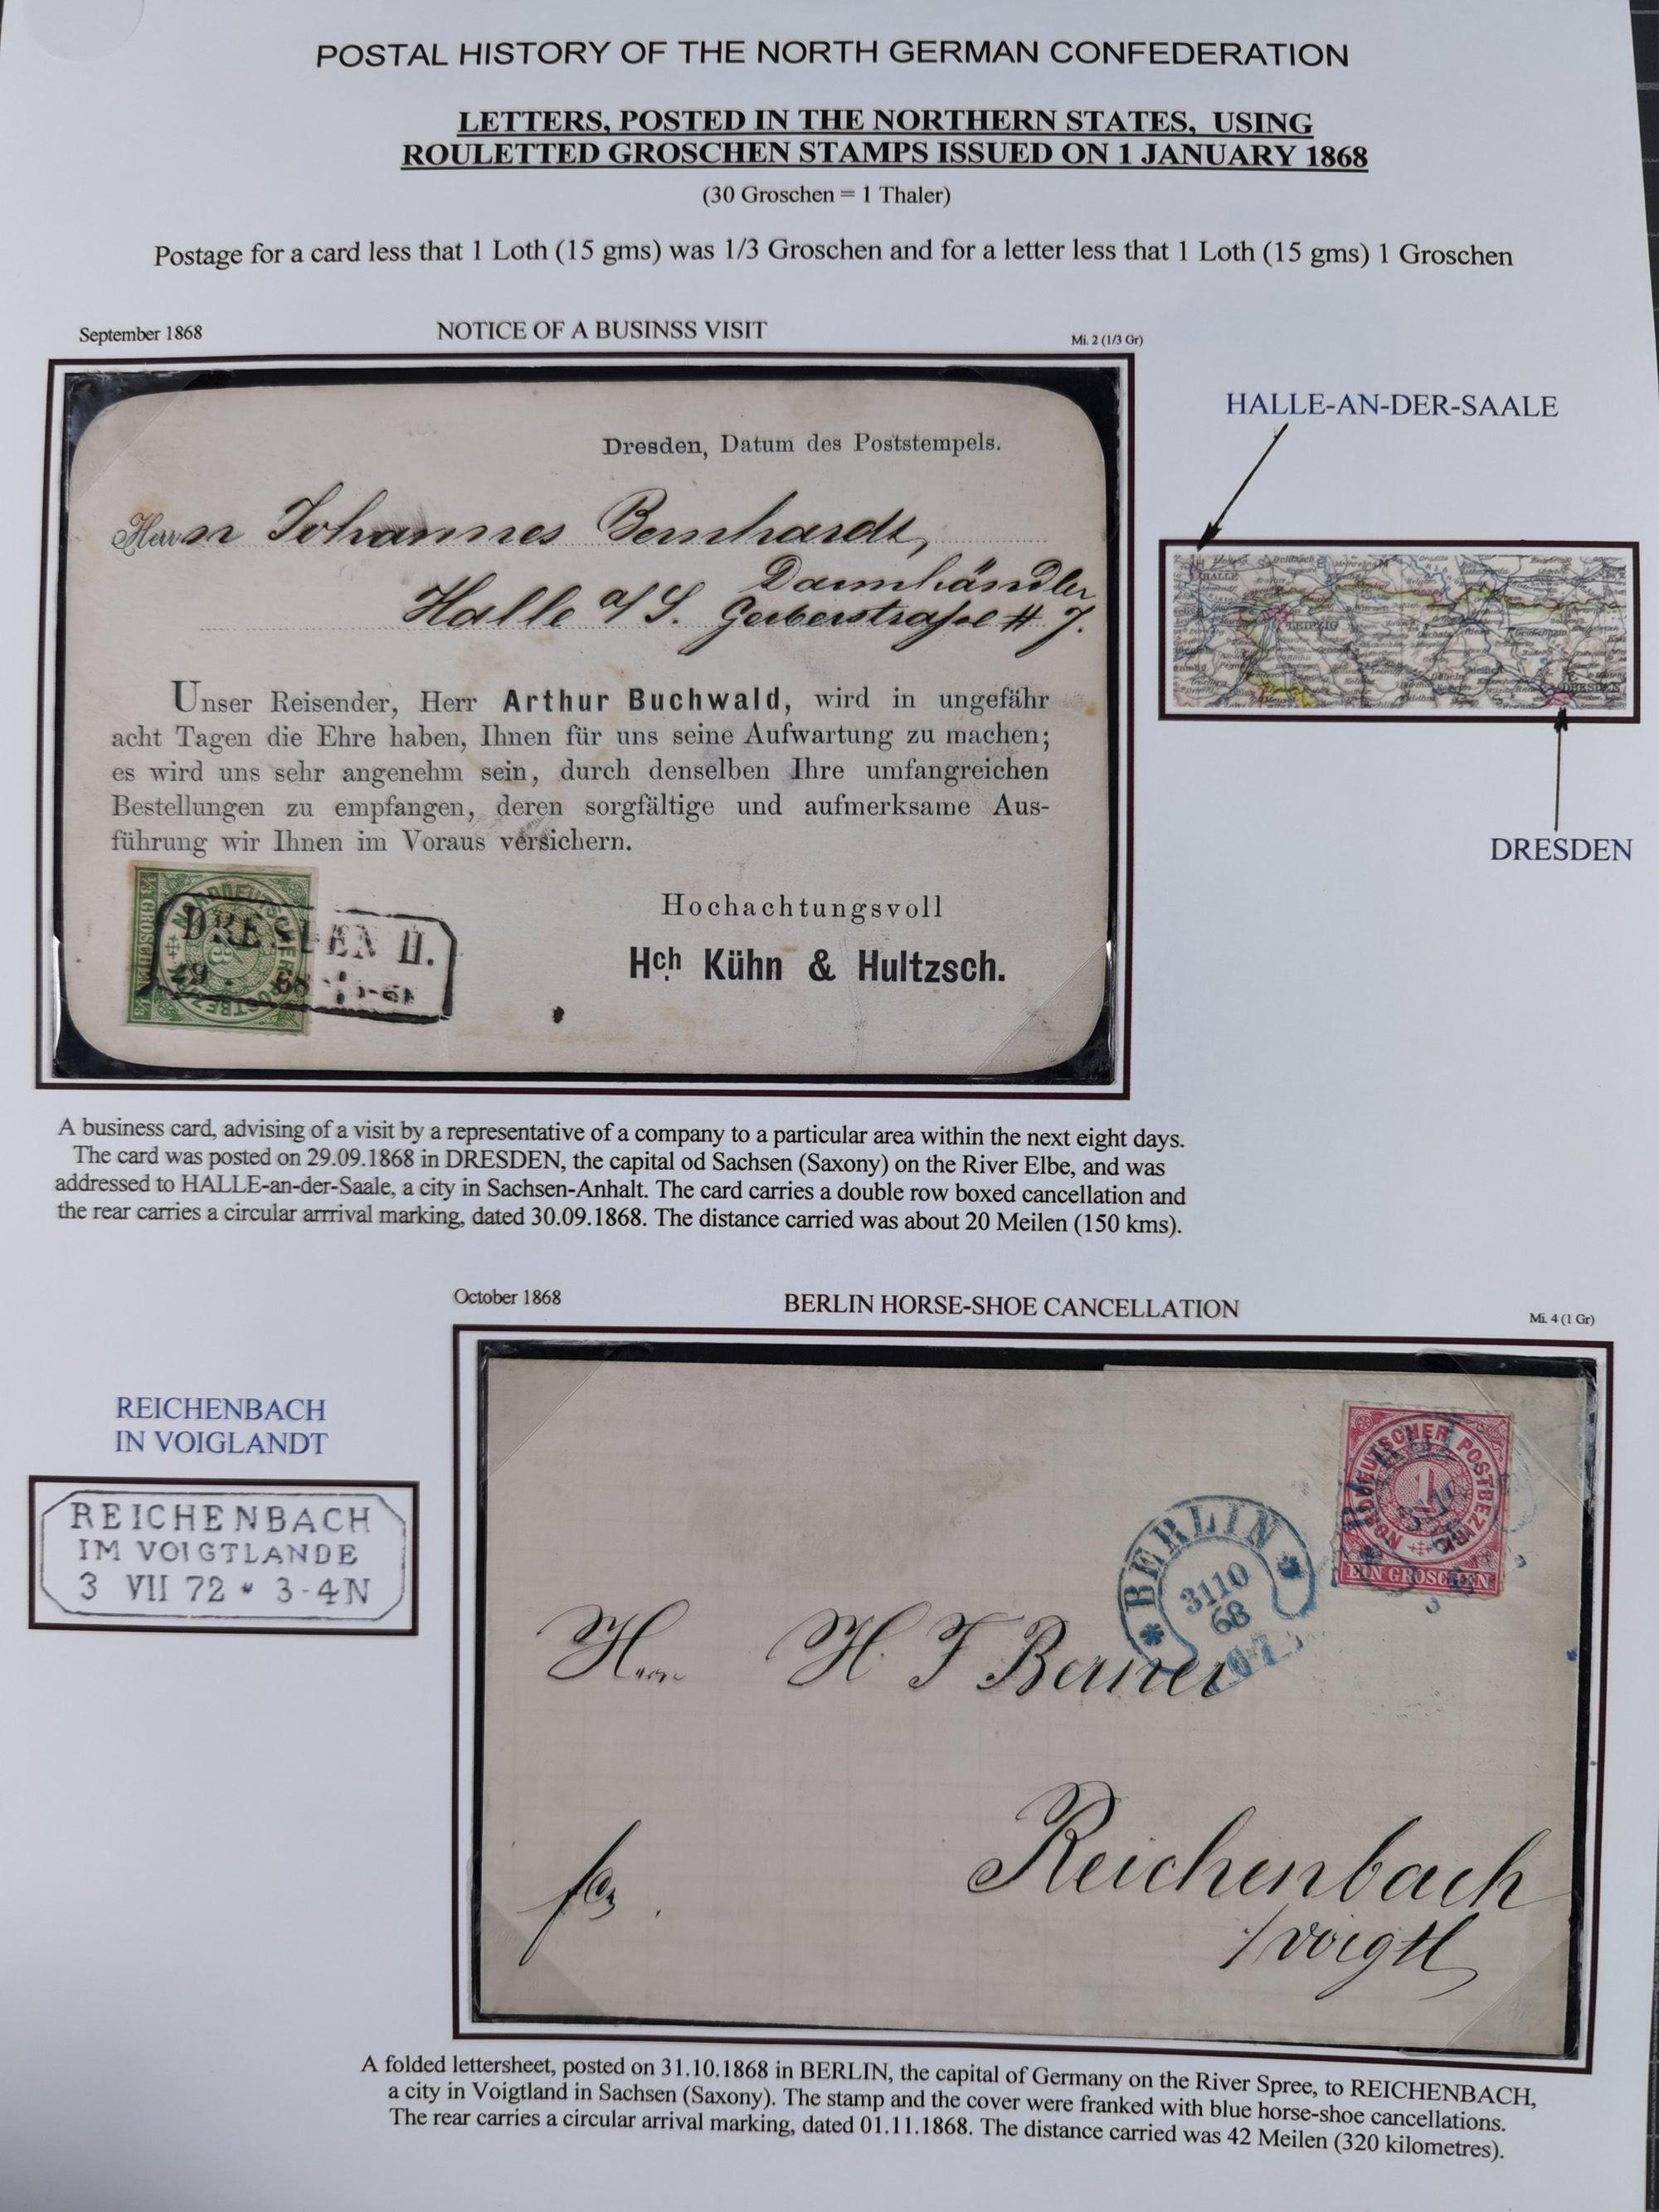 POSTAL HISTORY OF THE NORTH GERMAN CONFEDERATION
LETTERS, POSTED IN THE NORTHERN STATES, USING
ROULETTED GROSCHEN STAMPS ISSUED ON 1 JANUARY 1868
(30 Groschen = 1 Thaler)
Postage for a card less that 1 Loth (15 gms) was 1/3 Groschen and for a letter less that 1 Loth (15 gms) 1 Groschen
September 1868
NOTICE OF A BUSINSS VISIT
Mi. 2 (1/3 Gr)
HALLE-AN-DER-SAALE
HALLE
LEIPZIG
DRESDEN
DRESDEN
Dresden, Datum des Poststempels.
Herrn Johannes Bernhardt,
Darmhändler
Halle a/S. Gerberstraße # 7.
Unser Reisender, Herr Arthur Buchwald, wird in ungefähr
acht Tagen die Ehre haben, Ihnen für uns seine Aufwartung zu machen;
es wird uns sehr angenehm sein, durch denselben Ihre umfangreichen
Bestellungen zu empfangen, deren sorgfältige und aufmerksame Aus-
führung wir Ihnen im Voraus versichern.
Hochachtungsvoll
Hch. Kühn & Hultzsch.
1/3 GROSCHEN 1/3
NORDDEUTSCHER POSTBEZIRK
DRESDEN II.
29 68
A business card, advising of a visit by a representative of a company to a particular area within the next eight days.
The card was posted on 29.09.1868 in DRESDEN, the capital od Sachsen (Saxony) on the River Elbe, and was
addressed to HALLE-an-der-Saale, a city in Sachsen-Anhalt. The card carries a double row boxed cancellation and
the rear carries a circular arrrival marking, dated 30.09.1868. The distance carried was about 20 Meilen (150 kms).
October 1868
BERLIN HORSE-SHOE CANCELLATION
Mi. 4 (1 Gr)
REICHENBACH
IN VOIGLANDT
REICHENBACH
IM VOIGTLANDE
3 VII 72 * 3-4N
NORDDEUTSCHER POSTBEZIRK
1
EIN GROSCHEN
BERLIN
3110
68
Herrn H. F Berner
Reichenbach
i/voigtl
A folded lettersheet, posted on 31.10.1868 in BERLIN, the capital of Germany on the River Spree, to REICHENBACH,
a city in Voigtland in Sachsen (Saxony). The stamp and the cover were franked with blue horse-shoe cancellations.
The rear carries a circular arrival marking, dated 01.11.1868. The distance carried was 42 Meilen (320 kilometres).